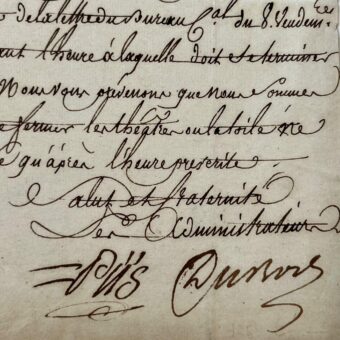 de la lettre du Bureau C.al du 8 Vendem.re
l'heure à laquelle doit se terminer
Nous vous prévenons que nous sommes
fermer les théâtres ou la toile ne
qu'après l'heure prescrite.
Salut et fraternité
Les Administrateurs
Piis Dubois